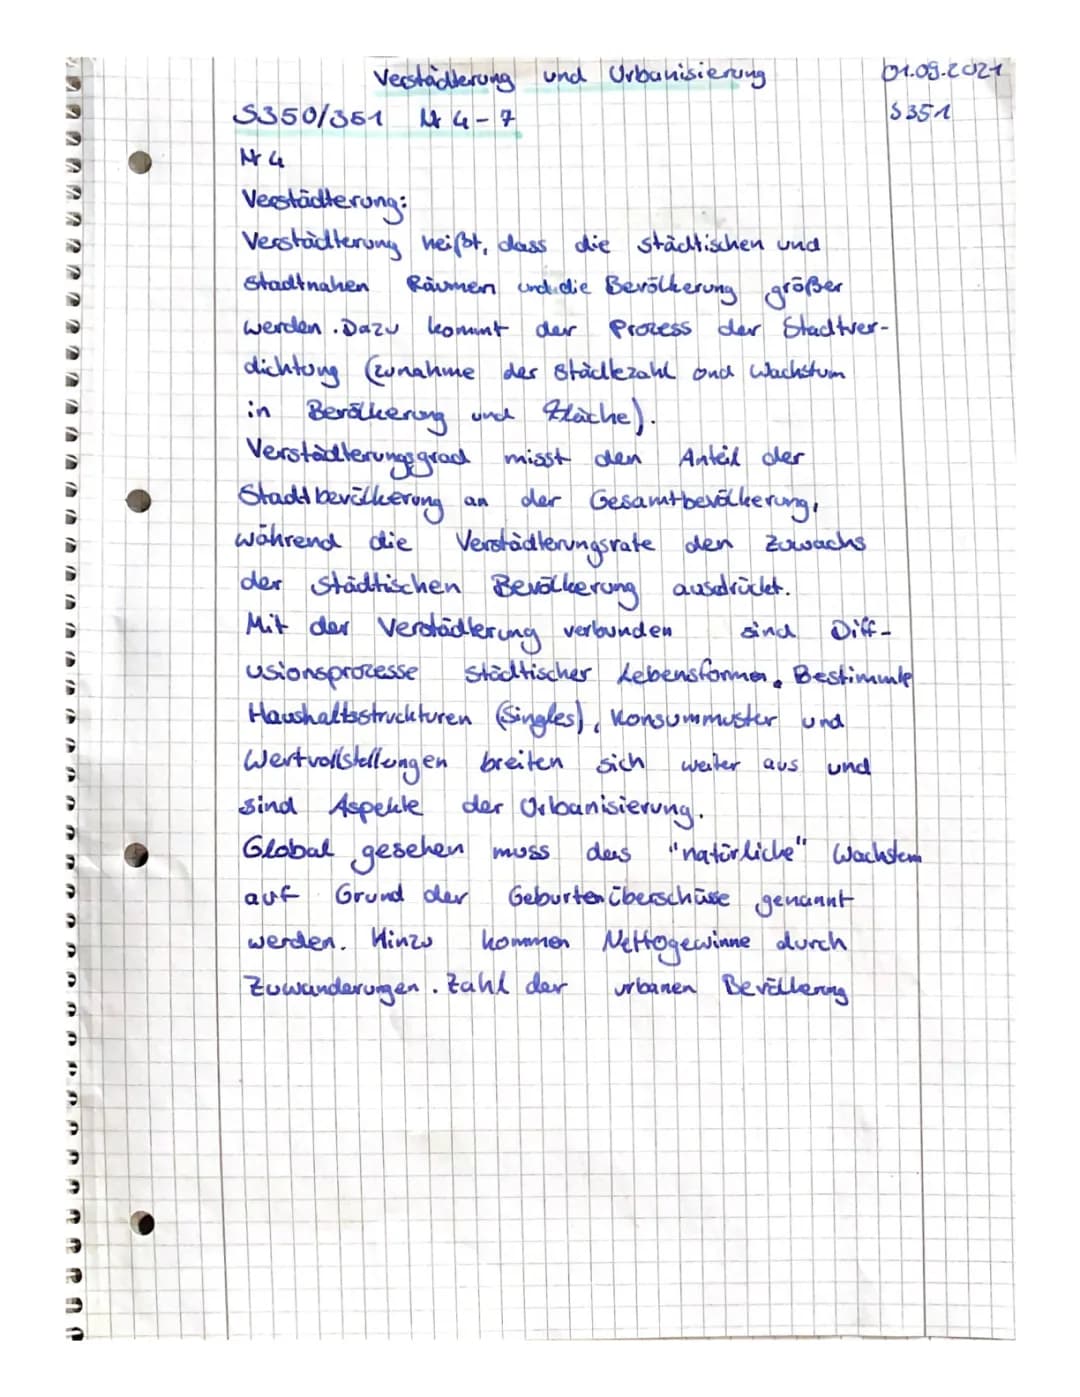 Verstädterung und Urbanisierung 01.09.2021
S350/351 Nr 4-7 S351
Nr 4
Verstädterung:
Verstädterung heißt, dass die städtischen und
stadtnahen Räumen und die Bevölkerung größer
werden. Dazu kommt der Prozess der Stadtver-
dichtung (zunahme der Städtezahl und Wachstum
in Bevölkerung und Fläche).
Verstädterungsgrad misst den Anteil der
Stadtbevölkerung an der Gesamtbevölkerung,
während die Verstädterungsrate den Zuwachs
der städtischen Bevölkerung ausdrückt.
Mit der Verstädterung verbunden sind Diff-
usionsprozesse städtischer Lebensformen. Bestimmte
Haushaltsstruckturen (Singles), Konsummuster und
Wertvollstellungen breiten sich weiter aus und
sind Aspekte der Urbanisierung.
Global gesehen muss das "natürliche" Wachstum
auf Grund der Geburtenüberschüsse genannt
werden. Hinzu kommen Nettogewinne durch
Zuwanderungen. Zahl der urbanen Bevölkerung